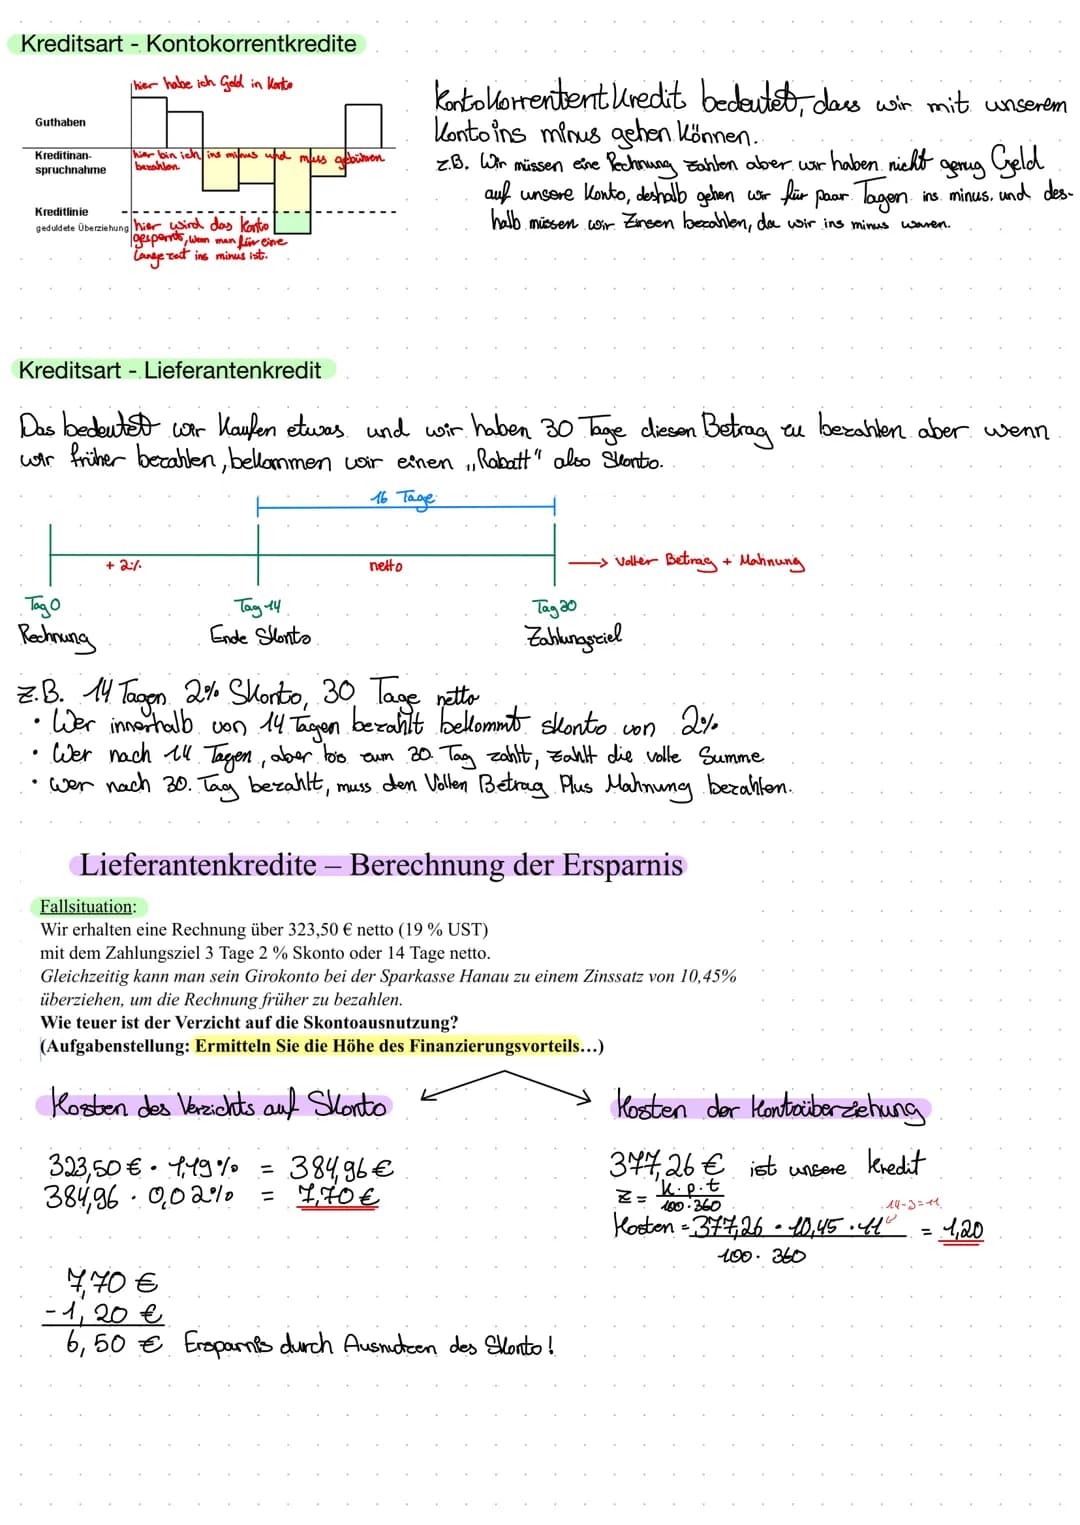 Kreditsart - Kontokorrentkredite
hier habe ich Geld in Konto
Guthaben
Kreditinan-
spruchnahme
hier bin ich ins minus und muss gebühren
bezahlen
Kreditlinie
geduldete Überziehung
hier wird das Konto
gesperrt, wenn man für eine
lange zeit ins minus ist.
Kontokorrentent kredit bedeutet, dass wir mit unserem
Konto ins minus gehen können.
z.B. Wir müssen eine Rechnung zahlen aber wir haben nicht genug Geld
auf unsere Konto, deshalb gehen wir für paar Tagen ins minus. und des-
halb müssen wir Zinsen bezahlen, da wir ins minus waren.
Kreditsart - Lieferantenkredit
Das bedeutet wir kaufen etwas und wir haben 30 Tage diesen Betrag zu bezahlen aber wenn
wir früher bezahlen, bekommen wir einen „Rabatt" also Skonto.
16 Tage
+ 2%
netto
→ Voller Betrag + Mahnung
Tag 0
Tag 14
Tag 30
Rechnung
Ende Skonto
Zahlungsziel
z.B. 14 Tagen 2% Skonto, 30 Tage netto
• Wer innerhalb von 14 Tagen bezahlt bekommt skonto von 2%
• Wer nach 14 Tagen, aber bis zum 30. Tag zahlt, zahlt die volle Summe
• Wer nach 30. Tag bezahlt, muss den Vollen Betrag Plus Mahnung bezahlen.
Lieferantenkredite – Berechnung der Ersparnis
Fallsituation:
Wir erhalten eine Rechnung über 323,50 € netto (19 % UST)
mit dem Zahlungsziel 3 Tage 2 % Skonto oder 14 Tage netto.
Gleichzeitig kann man sein Girokonto bei der Sparkasse Hanau zu einem Zinssatz von 10,45%
überziehen, um die Rechnung früher zu bezahlen.
Wie teuer ist der Verzicht auf die Skontoausnutzung?
(Aufgabenstellung: Ermitteln Sie die Höhe des Finanzierungsvorteils…)
Kosten des Verzichts auf Skonto
Kosten der Kontoüberziehung
323,50 € · 1,19% = 384,96 €
384,96 · 0,02% = 7,70 €
377,26 € ist unsere kredit
z = k·p·t
100·360
14-3=11
Kosten = 377,26 · 10,45 · 11 = 1,20
100 · 360
7,70 €
- 1,20 €
6,50 € Ersparnis durch Ausnutzen des Skonto!